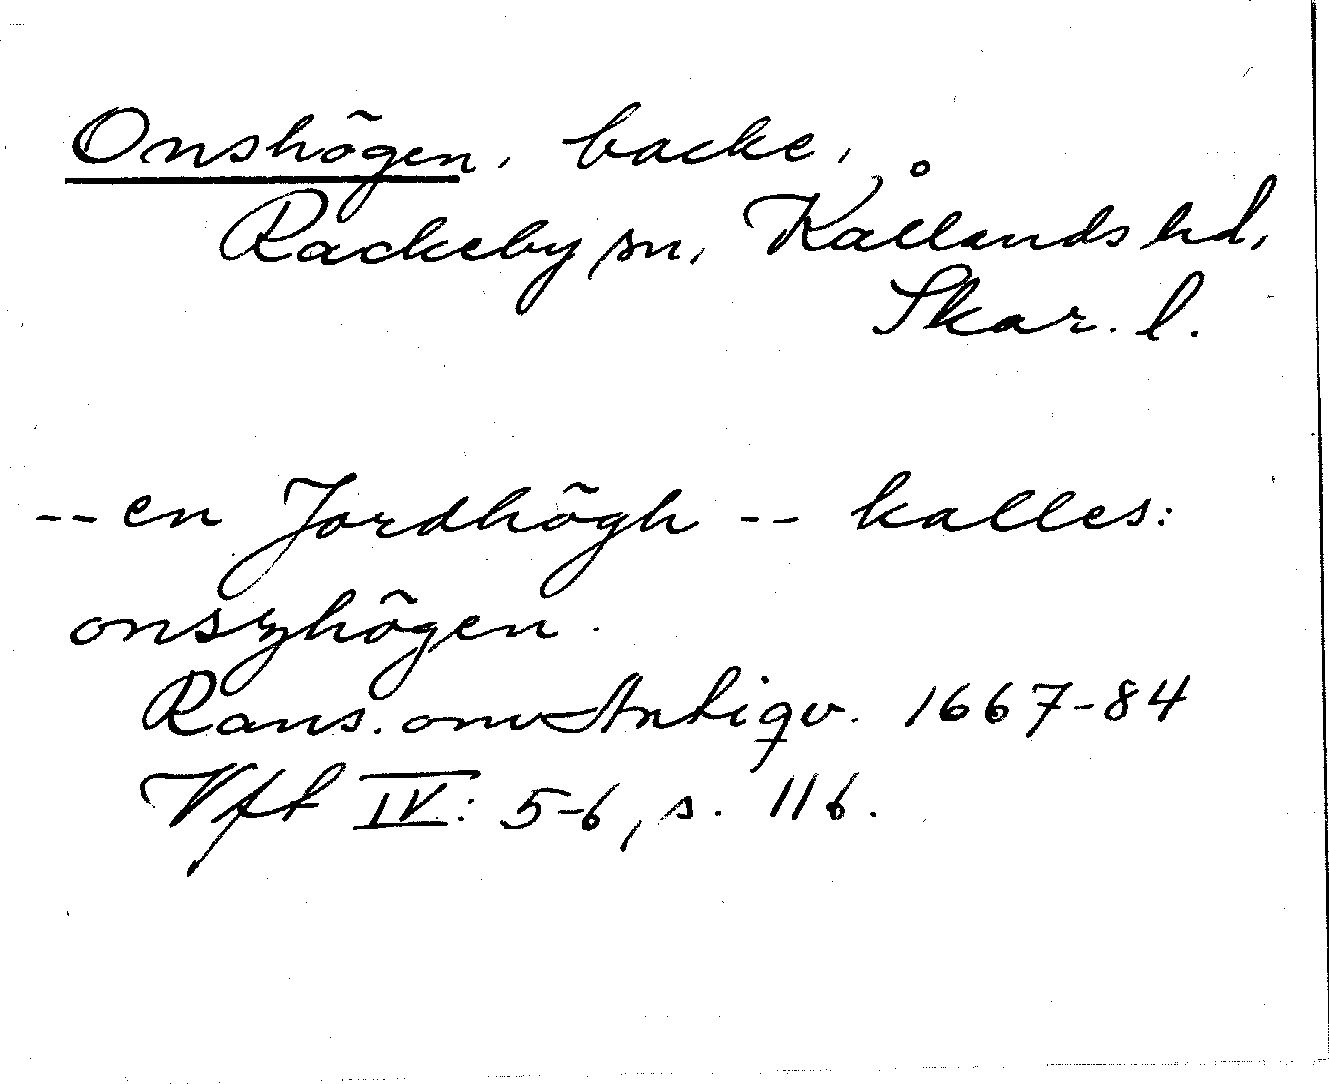 Onshögen, backe,
Rackeby sn, Kållands hd,
Skar. l.
-- en Jordhögh -- kalles:
onszhögen.
Rans. om Antiqv. 1667-84
Vft IV: 5-6, s. 116.